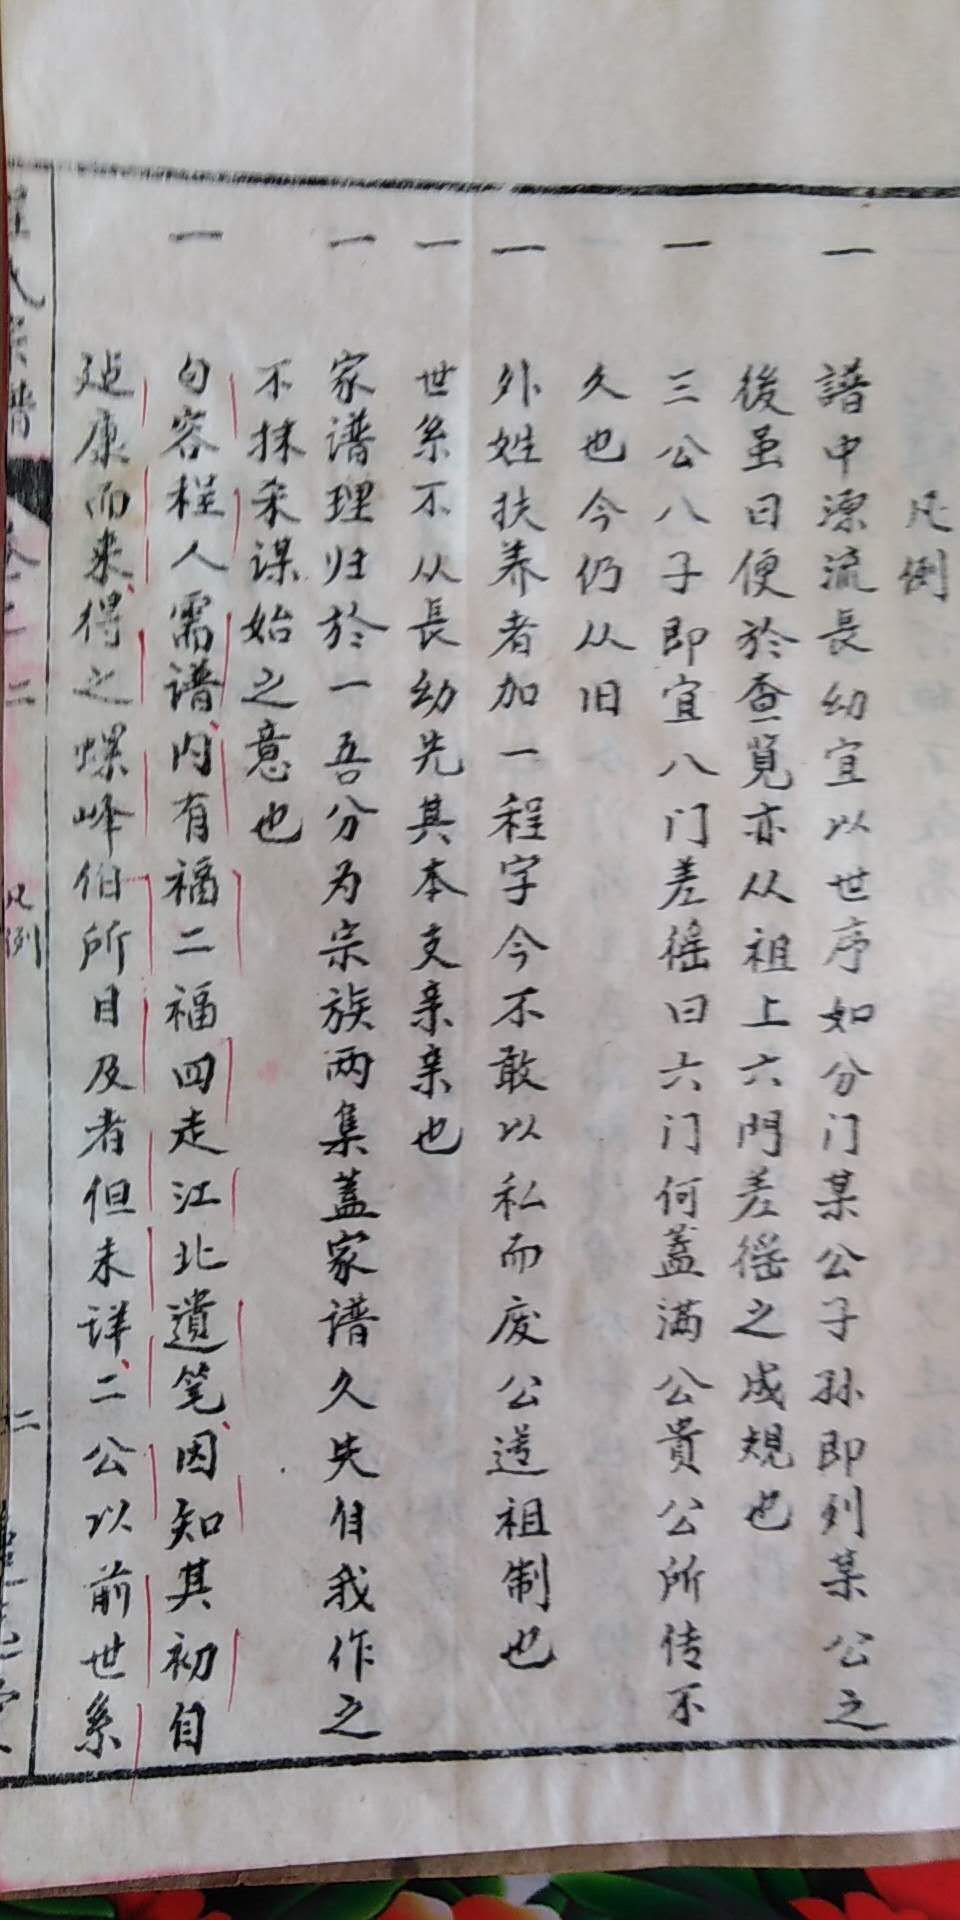 凡例
一 譜中源流長幼宜以世序如分门某公子孙即列某公之
後虽曰便於查覧亦从祖上六門差徭之成規也
一 三公八子即宜八门差徭曰六门何蓋满公貴公所传不
久也今仍从旧
一 外姓扶养者加一程字今不敢以私而废公遵祖制也
一 世系不从長幼先其本支亲亲也
一 家谱理归於一吾分为宗族两集蓋家谱久失自我作之
不抹杀谋始之意也
一 句容程人需谱内有福二福四走江北遗笔因知其初自
延康而来得之螺峰伯所目及者但未详二公以前世系
程氏宗譜
卷二
二
凡例
二